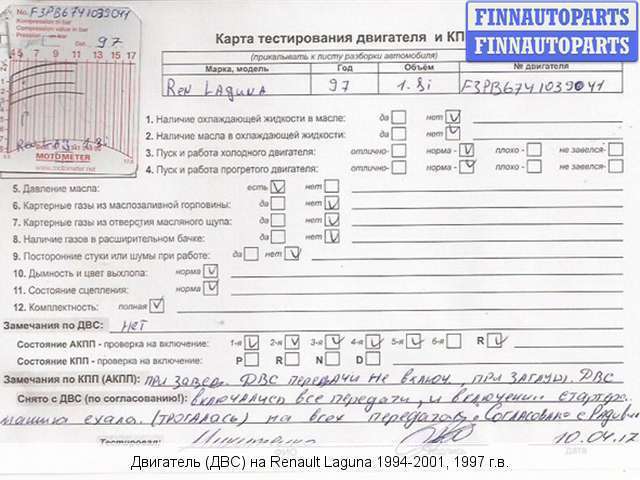 No. F3PB6741039041
Kompression in bar
Compression value in bar
Pression
Dat. 97
4 5 7 9 11 13 15 17
Ren Lag 1.8i
MOTOMETER
www.motometer.net
FINNAUTOPARTS
FINNAUTOPARTS
Карта тестирования двигателя и КП
(прикалывать к листу разборки автомобиля)
Марка, модель Год Объём № двигателя
Ren LAGUNA 97 1.8i F3PB6741039041
1. Наличие охлаждающей жидкости в масле: да нет V
2. Наличие масла в охлаждающей жидкости: да нет V
3. Пуск и работа холодного двигателя: отлично- норма - V плохо - не завелся-
4. Пуск и работа прогретого двигателя: отлично- норма - V плохо - не завелся-
5. Давление масла: есть V нет
6. Картерные газы из маслозаливной горловины: да нет V
7. Картерные газы из отверстия масляного щупа: да нет V
8. Наличие газов в расширительном бачке: да нет V
9. Посторонние стуки или шумы при работе: да нет V
10. Дымность и цвет выхлопа: норма V
11. Состояние сцепления: норма V
12. Комплектность: полная V
Замечания по ДВС: НЕТ
Состояние АКПП - проверка на включение: 1-я V 2-я V 3-я V 4-я V 5-я V 6-я R V
Состояние КПП - проверка на включение: P R N D
Замечания по КПП (АКПП): при завед. ДВС передачи не включ, при заглуш. ДВС
Снято с ДВС (по согласованию!): включались все передачи, и включении стартера
машина ехала (трогалась) на всех передачах. Согласовано с
Тестировал: ФИО подпись 10.04.17 дата
Двигатель (ДВС) на Renault Laguna 1994-2001, 1997 г.в.